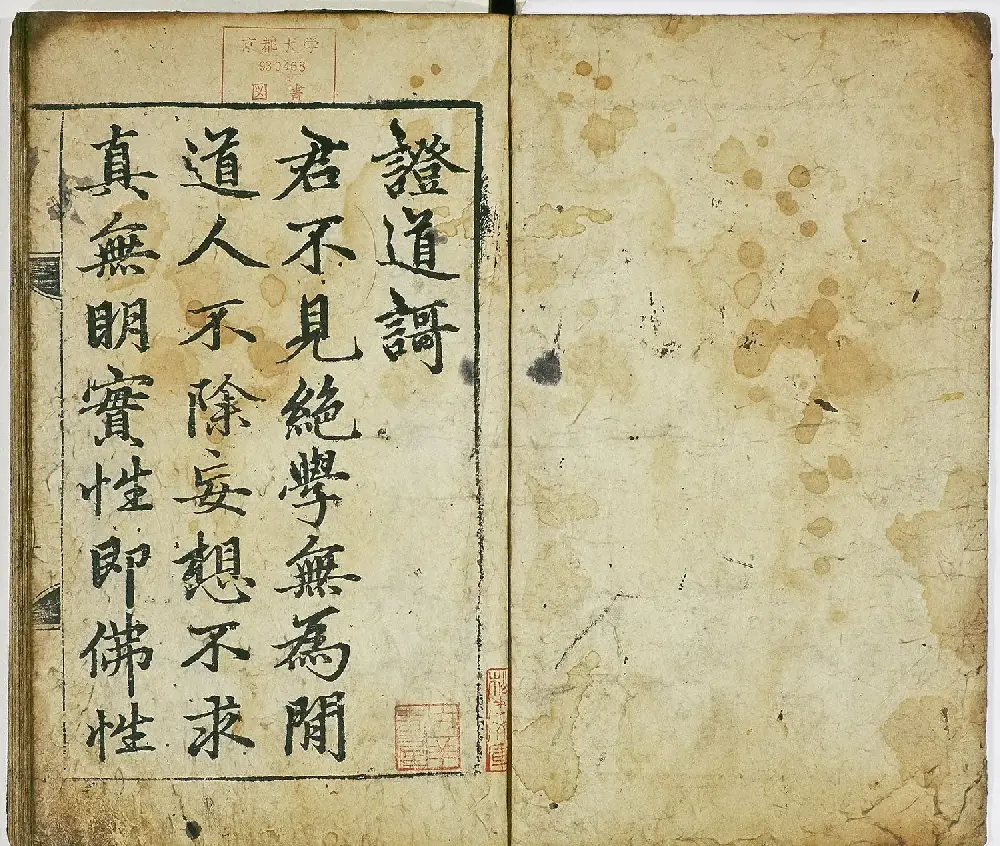 證道謌
君不見絕學無為閒
道人不除妄想不求
真無明實性即佛性
京都大学
図書